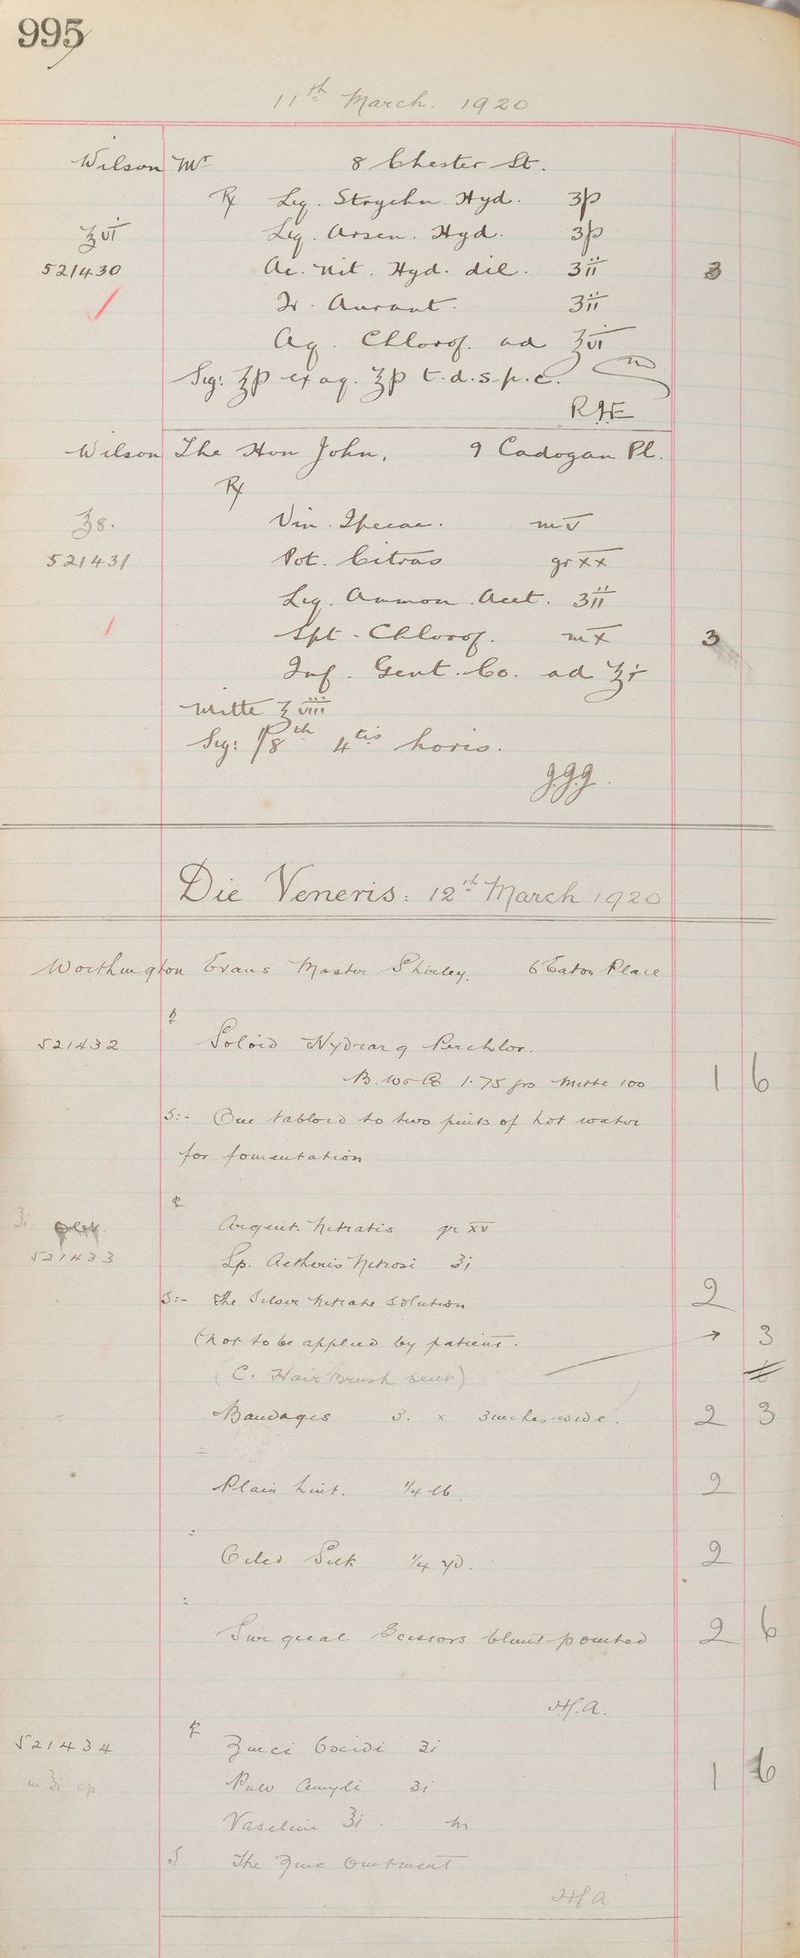 995
11th March. 1920
Wilson Mr 8 Chester St.
℞ Liq. Strychn. Hyd. ʒp
℥vi Liq. Arsen. Hyd. ʒp
521430 Ac. Nit. Hyd. dil. ʒii 3
Tr. Aurant. ʒii
Aq. Chlorof. ad ℥vi
Sig: ℥p ex aq. ℥p t.d.s.p.c.
Wilson The Hon John, 9 Cadogan Pl.
℞
℥8. Vin. Ipecac. m v
521431 Pot. Citras gr xx
Liq. Ammon. Acet. ʒii
Spt. Chlorof. m x 3
Inf. Gent. Co. ad ℥i
Mitte ℥viii
Sig: 1/8th 4tis horis.
J.J.J.
Die Veneris: 12th March 1920
Worthington Evans Master Shirley. 6 Eaton Place
℞
521432 Soloid Hydrarg Perchlor.
B.W & Co 1.75 grs Mitte 100 1 6
S:- One tabloid to two pints of hot water
for fomentation
℞
ʒi Argent. Nitratis gr xv
521433 Sp. Aetheris Nitrosi ʒi
S:- The Silver Nitrate Solution 2
(Not to be applied by patient. → 3
(C. Hair Brush sent)
Bandages 3. x 3 inches wide. 2 3
Plain Lint. 1/4 lb 2
Oiled Silk 1/4 yd. 2
Surgical Scissors blunt-pointed 2 6
H.A.
℞
521434 Zinci Oxidi ʒi
Pulv Amyli ʒi 1 6
Vaselini ℥i. m
S The Zinc Ointment
H.A